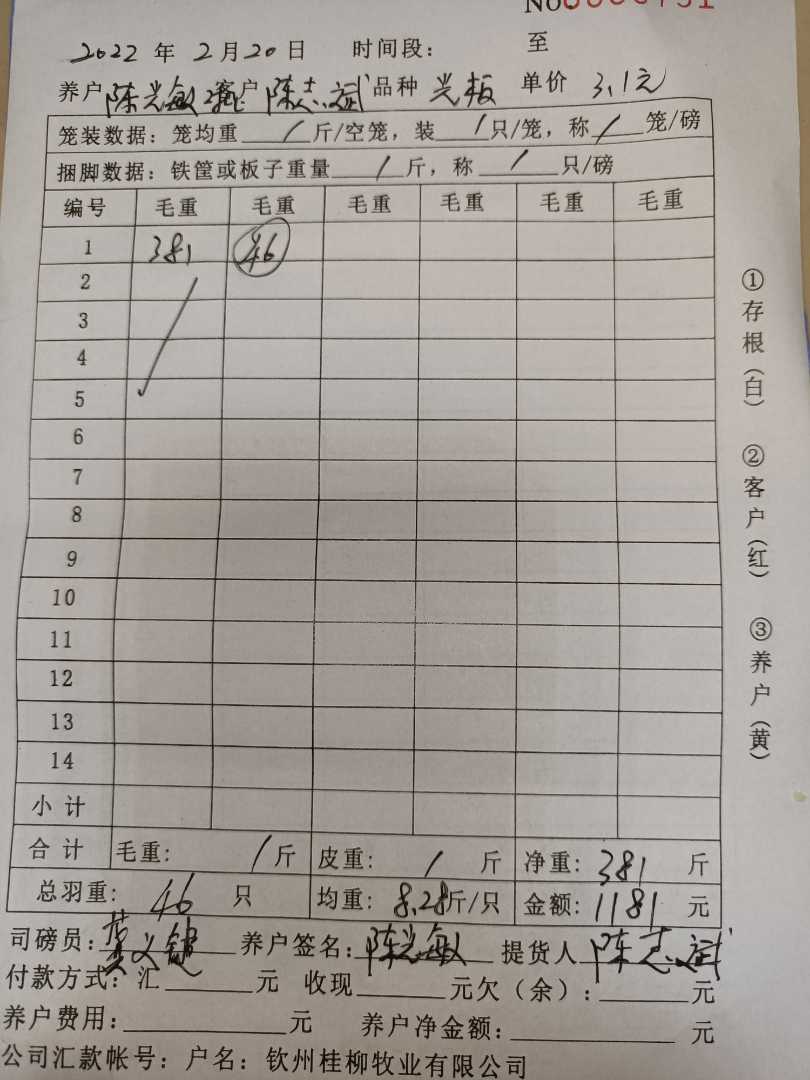 No
2022 年 2月20日 时间段: 至
养户 陈光敏 客户 陈志斌 品种 光板 单价 3.1元
笼装数据: 笼均重 / 斤/空笼, 装 / 只/笼, 称 / 笼/磅
捆脚数据: 铁筐或板子重量 / 斤, 称 / 只/磅
编号 毛重 毛重 毛重 毛重 毛重 毛重
1 381 46
2
3
4
5
6
7
8
9
10
11
12
13
14
小计
合计 毛重: / 斤 皮重: / 斤 净重: 381 斤
总羽重: 46 只 均重: 8.28斤/只 金额: 1181 元
司磅员: 黄义键 养户签名: 陈光敏 提货人 陈志斌
付款方式: 汇 元 收现 元欠(余): 元
养户费用: 元 养户净金额: 元
公司汇款帐号: 户名: 钦州桂柳牧业有限公司
①存根(白) ②客户(红) ③养户(黄)